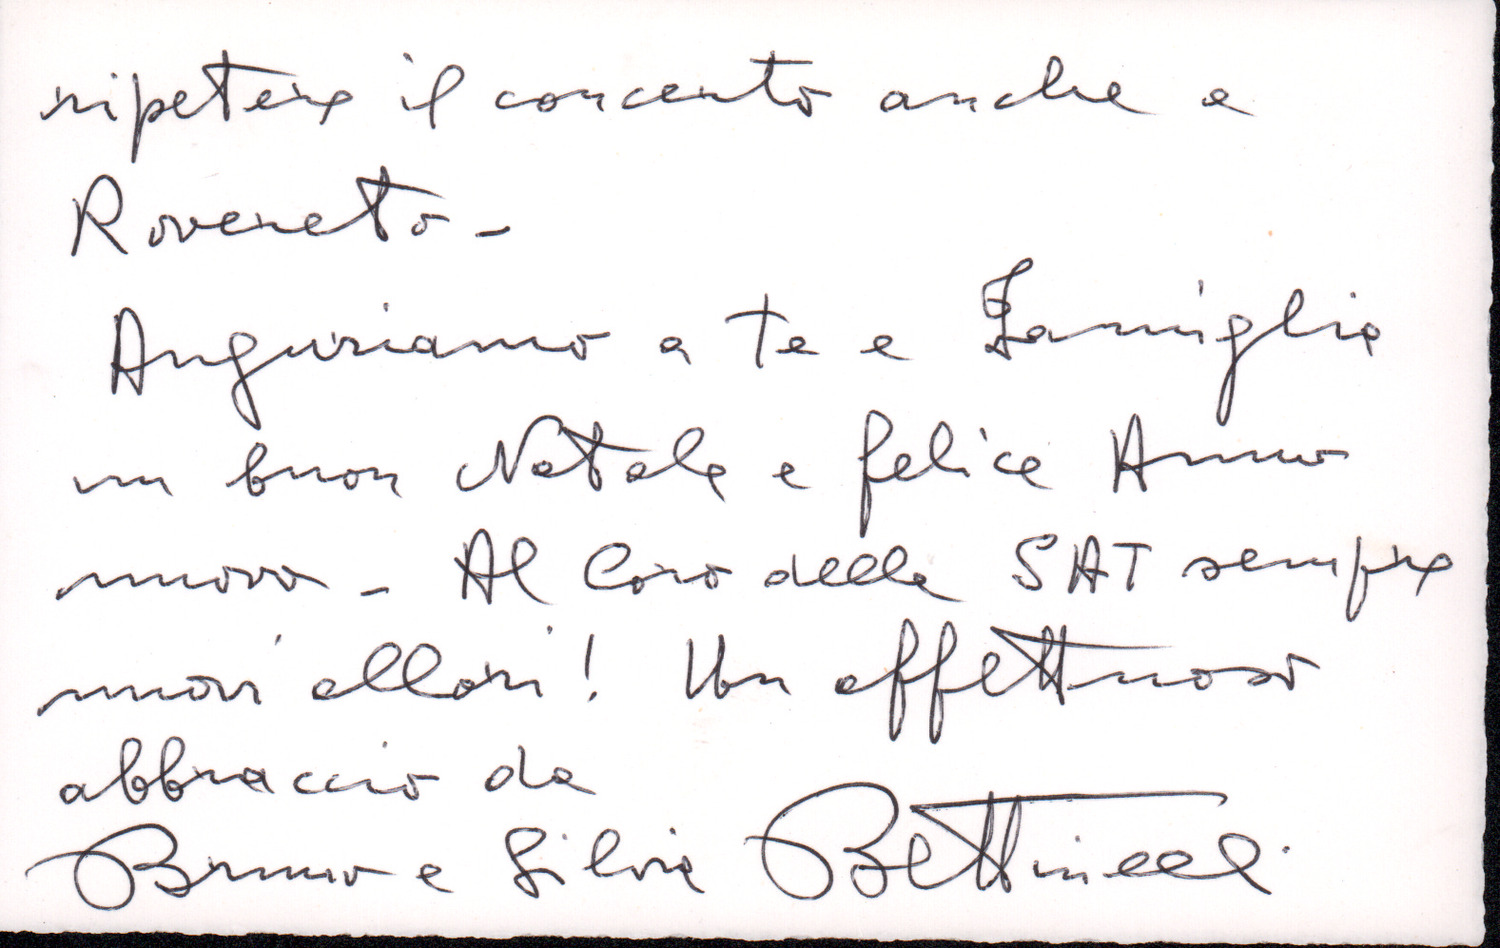 ripetere il concerto anche a
Rovereto -
Auguriamo a te e Famiglia
un buon Natale e felice Anno
nuovo - Al Coro della SAT sempre
nuovi allori! Un affettuoso
abbraccio da
Bruno e Silvia Bettinelli